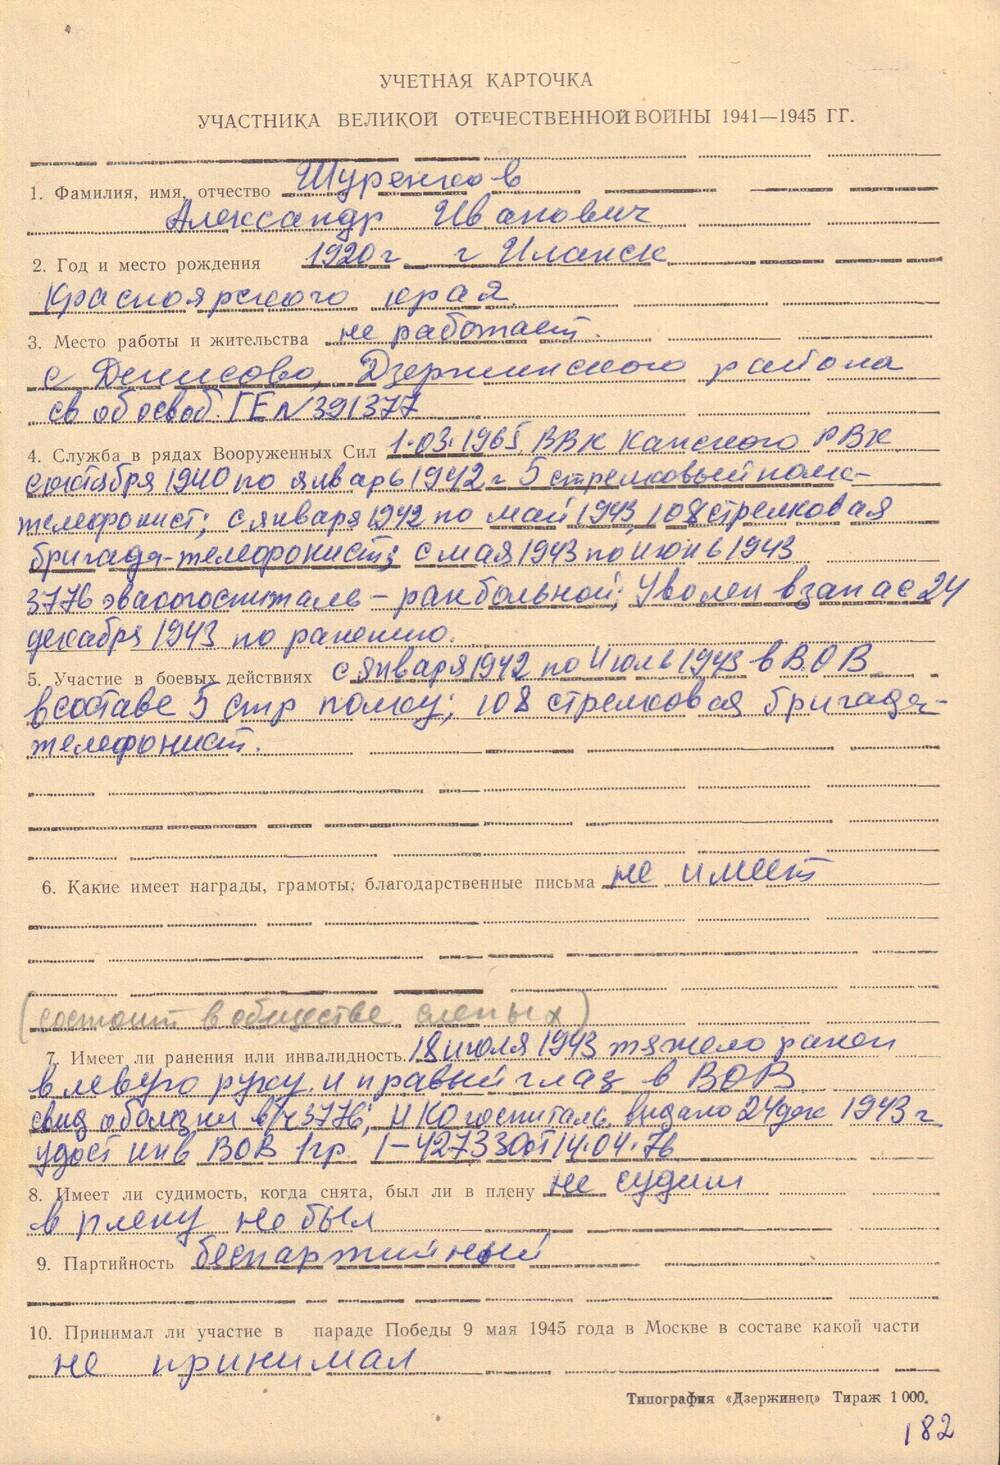 УЧЕТНАЯ КАРТОЧКА
УЧАСТНИКА ВЕЛИКОЙ ОТЕЧЕСТВЕННОЙ ВОЙНЫ 1941—1945 ГГ.
1. Фамилия, имя, отчество Шуренков
Александр Иванович
2. Год и место рождения 1920 г г Иланск
Красноярского края.
3. Место работы и жительства не работает.
с Денисово, Дзержинского района
св об освоб. ГЕ N 391377
4. Служба в рядах Вооруженных Сил 1.03.1965 ВВК Канского РВК
с октября 1940 по январь 1942 г 5 стрелковый полк-
телефонист; с января 1942 по май 1943, 108 стрелковая
бригада-телефонист; с мая 1943 по июнь 1943
3776 эвакогоспиталь – ранбольной; Уволен в запас 24
декабря 1943 по ранению.
5. Участие в боевых действиях с января 1942 по Июль 1943 в В.О В
в составе 5 стр полку; 108 стрелковая бригада-
телефонист.
6. Какие имеет награды, грамоты, благодарственные письма не имеет
(состоит в обществе слепых)
7. Имеет ли ранения или инвалидность. 18 июля 1943 тяжело ранен
в левую руку и правый глаз в ВОВ
свид о болезни в/ч 3776, НКО госпиталь выдало 24 дек 1943 г
удост инв ВОВ 1 гр. I–427330 от 14.04.76
8. Имеет ли судимость, когда снята, был ли в плену не судим
в плену не был
9. Партийность беспартийный
10. Принимал ли участие в параде Победы 9 мая 1945 года в Москве в составе какой части
не принимал
Типография «Дзержинец» Тираж 1 000.
182